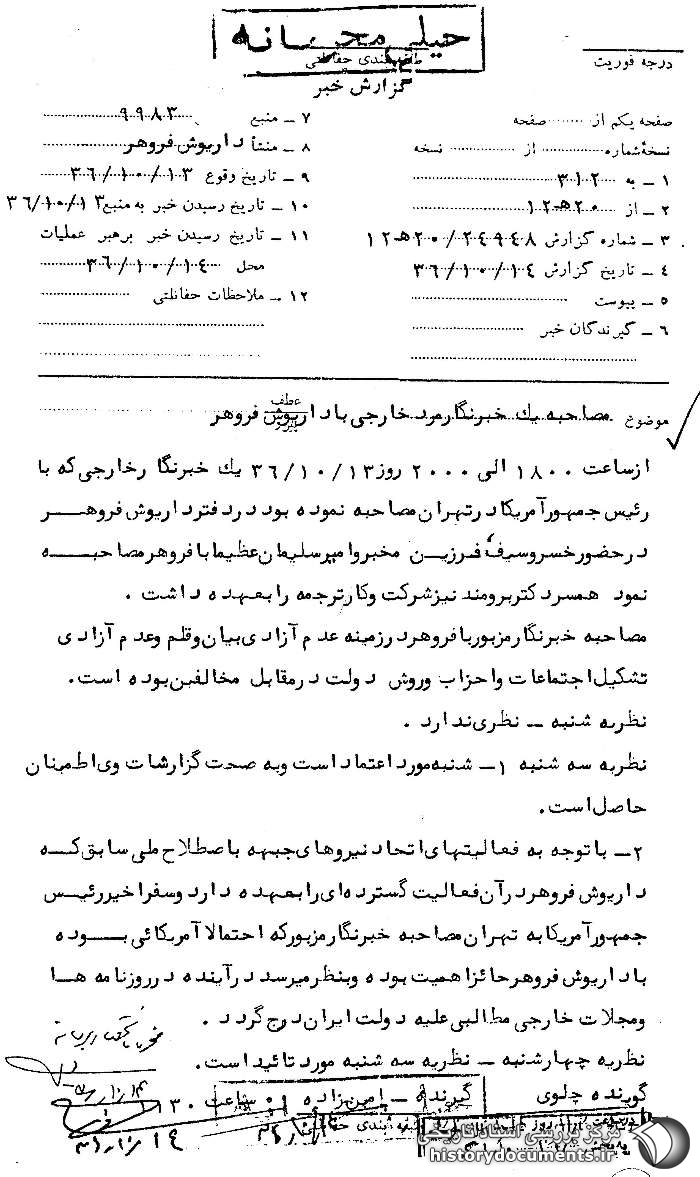 خیلی محرمانه
طبقه‌بندی حفاظتی
گزارش خبر
درجه فوریت
صفحه یکم از صفحه
نسخهٔ شماره از نسخه
۱ ــ به ۳۱۲
۲ ــ از ۲۰هـ۱۲
۳ ــ شماره گزارش ۲۰/۲۴۹۴۸هـ۱۲
۴ ــ تاریخ گزارش ۳۶/۱۰/۱۴
۵ ــ پیوست
۶ ــ گیرندگان خبر
۷ ــ منبع ۹۹۸۳
۸ ــ منشأ داریوش فروهر
۹ ــ تاریخ وقوع ۳۶/۱۰/۱۳
۱۰ ــ تاریخ رسیدن خبر به منبع ۳۶/۱۰/۱۳
۱۱ ــ تاریخ رسیدن خبر برهبر عملیات
محل ۳۶/۱۰/۱۴
۱۲ ــ ملاحظات حفاظتی
موضوع مصاحبه یك خبرنگار مرد خارجی با داریوش فروهر
عطف
پیرو
از ساعت ۱۸۰۰ الی ۲۰۰۰ روز ۳۶/۱۰/۱۳ یك خبرنگار خارجی که با
رئیس جمهور آمریکا در تهران مصاحبه نموده بود در دفتر داریوش فروهر
در حضور خسرو سیف فرزین مخبر و امیر سلیمان عظیما با فروهر مصاحبه
نمود همسر دکتر برومند نیز شرکت و کار ترجمه را بعهده داشت .
مصاحبه خبرنگار مزبور با فروهر در زمینه عدم آزادی بیان و قلم و عدم آزادی
تشکیل اجتماعات و احزاب و روش دولت در مقابل مخالفین بوده است.
نظریه شنبه ــ نظری ندارد .
نظریه سه شنبه ۱ــ شنبه مورد اعتماد است و به صحت گزارشات وی اطمینان
حاصل است.
۲ــ با توجه به فعالیتهای اتحاد نیروهای جبهه باصطلاح ملی سابق که
داریوش فروهر در آن فعالیت گسترده‌ای را بعهده دارد و سفر اخیر رئیس
جمهور آمریکا به تهران مصاحبه خبرنگار مزبور که احتمالا آمریکائی بوده
با داریوش فروهر حائز اهمیت بوده و بنظر میرسد در آینده در روزنامه ها
و مجلات خارجی مطالبی علیه دولت ایران درج گردد .
نظریه چهارشنبه ــ نظریه سه شنبه مورد تائید است.
گوینده چلوی گیرنده ــ امین زاده ساعت
۱۴/۱۰/۳۶
مرکز بررسی اسناد تاریخی
historydocuments.ir